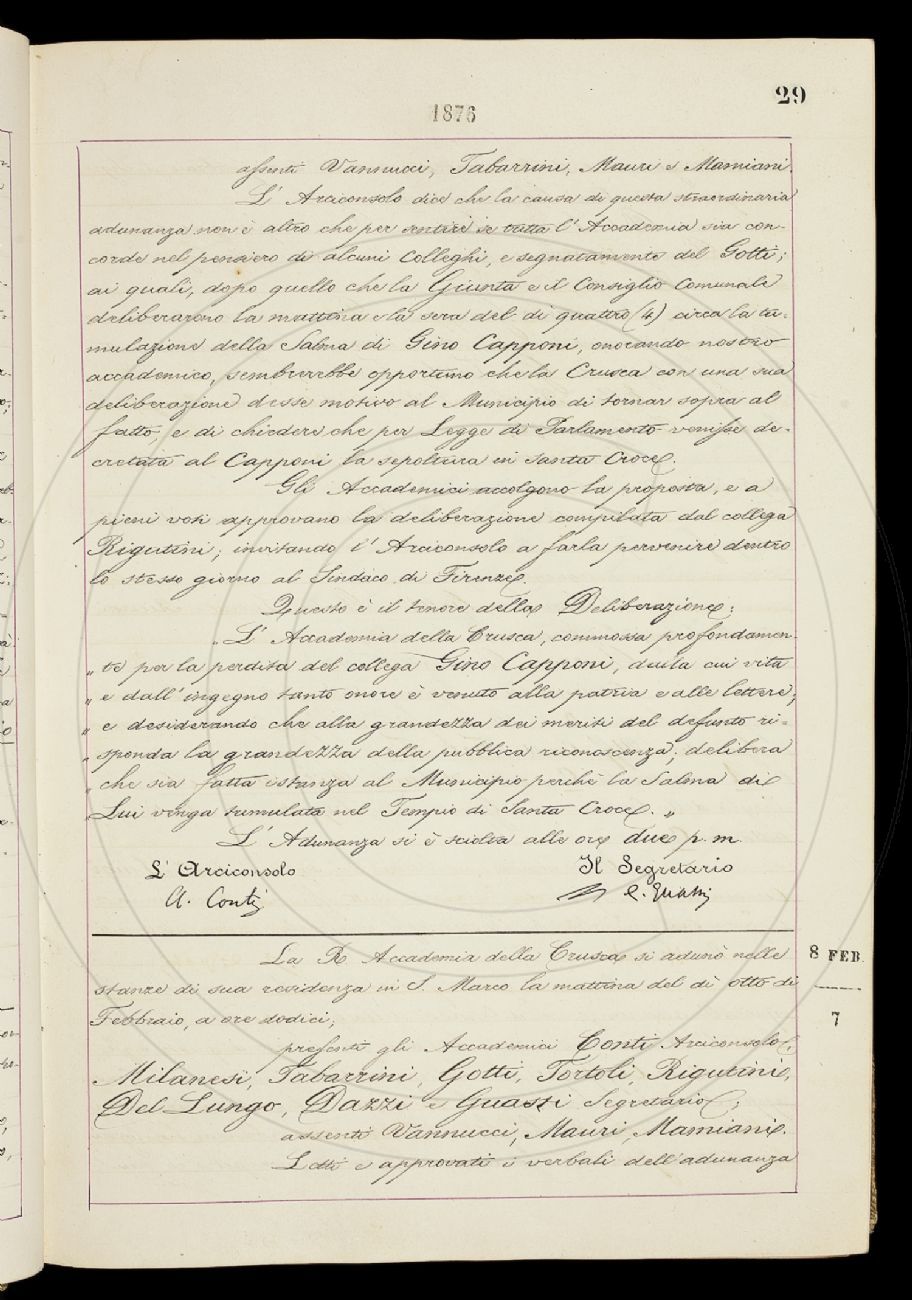 29
1876
assenti Vannucci, Tabarrini, Mauri e Mamiani.
L' Arciconsolo dice che la causa di questa straordinaria
adunanza non è altro che per sentire se tutta l' Accademia sia con-
corde nel pensiero di alcuni Colleghi, e segnatamente del Gotti;
ai quali, dopo quello che la Giunta e il Consiglio Comunale
deliberarono la mattina e la sera del dì quattro (4) circa la tu-
mulazione della Salma di Gino Capponi, onorando nostro
accademico, sembrerebbe opportuno che la Crusca con una sua
deliberazione desse motivo al Municipio di tornar sopra al
fatto, e di chiedere che per Legge di Parlamento venisse de-
cretata al Capponi la sepoltura in Santa Croce.
Gli Accademici accolgono la proposta, e a
pieni voti approvano la deliberazione compilata dal collega
Rigutini; invitando l' Arciconsolo a farla pervenire dentro
lo stesso giorno al Sindaco di Firenze.
Questo è il tenore della Deliberazione:
„ L' Accademia della Crusca, commossa profondamen-
„ te per la perdita del collega Gino Capponi, dalla cui vita
„ e dall' ingegno tanto onore è venuto alla patria e alle lettere;
„ e desiderando che alla grandezza dei meriti del defunto ri-
„ sponda la grandezza della pubblica riconoscenza; delibera
„ che sia fatta istanza al Municipio perchè la Salma di
„ Lui venga tumulata nel Tempio di Santa Croce. „
L' Adunanza si è sciolta alle ore due p. m.
L' Arciconsolo Il Segretario
A. Conti C. Guasti
La R. Accademia della Crusca si adunò nelle
8 FEB.
stanze di sua residenza in S. Marco la mattina del dì otto di
Febbraio, a ore dodici;
7
presenti gli Accademici Conti Arciconsolo,
Milanesi, Tabarrini, Gotti, Tortoli, Rigutini,
Del Lungo, Dazzi e Guasti Segretario;
assenti Vannucci, Mauri, Mamiani.
Letti e approvati i verbali dell' adunanza